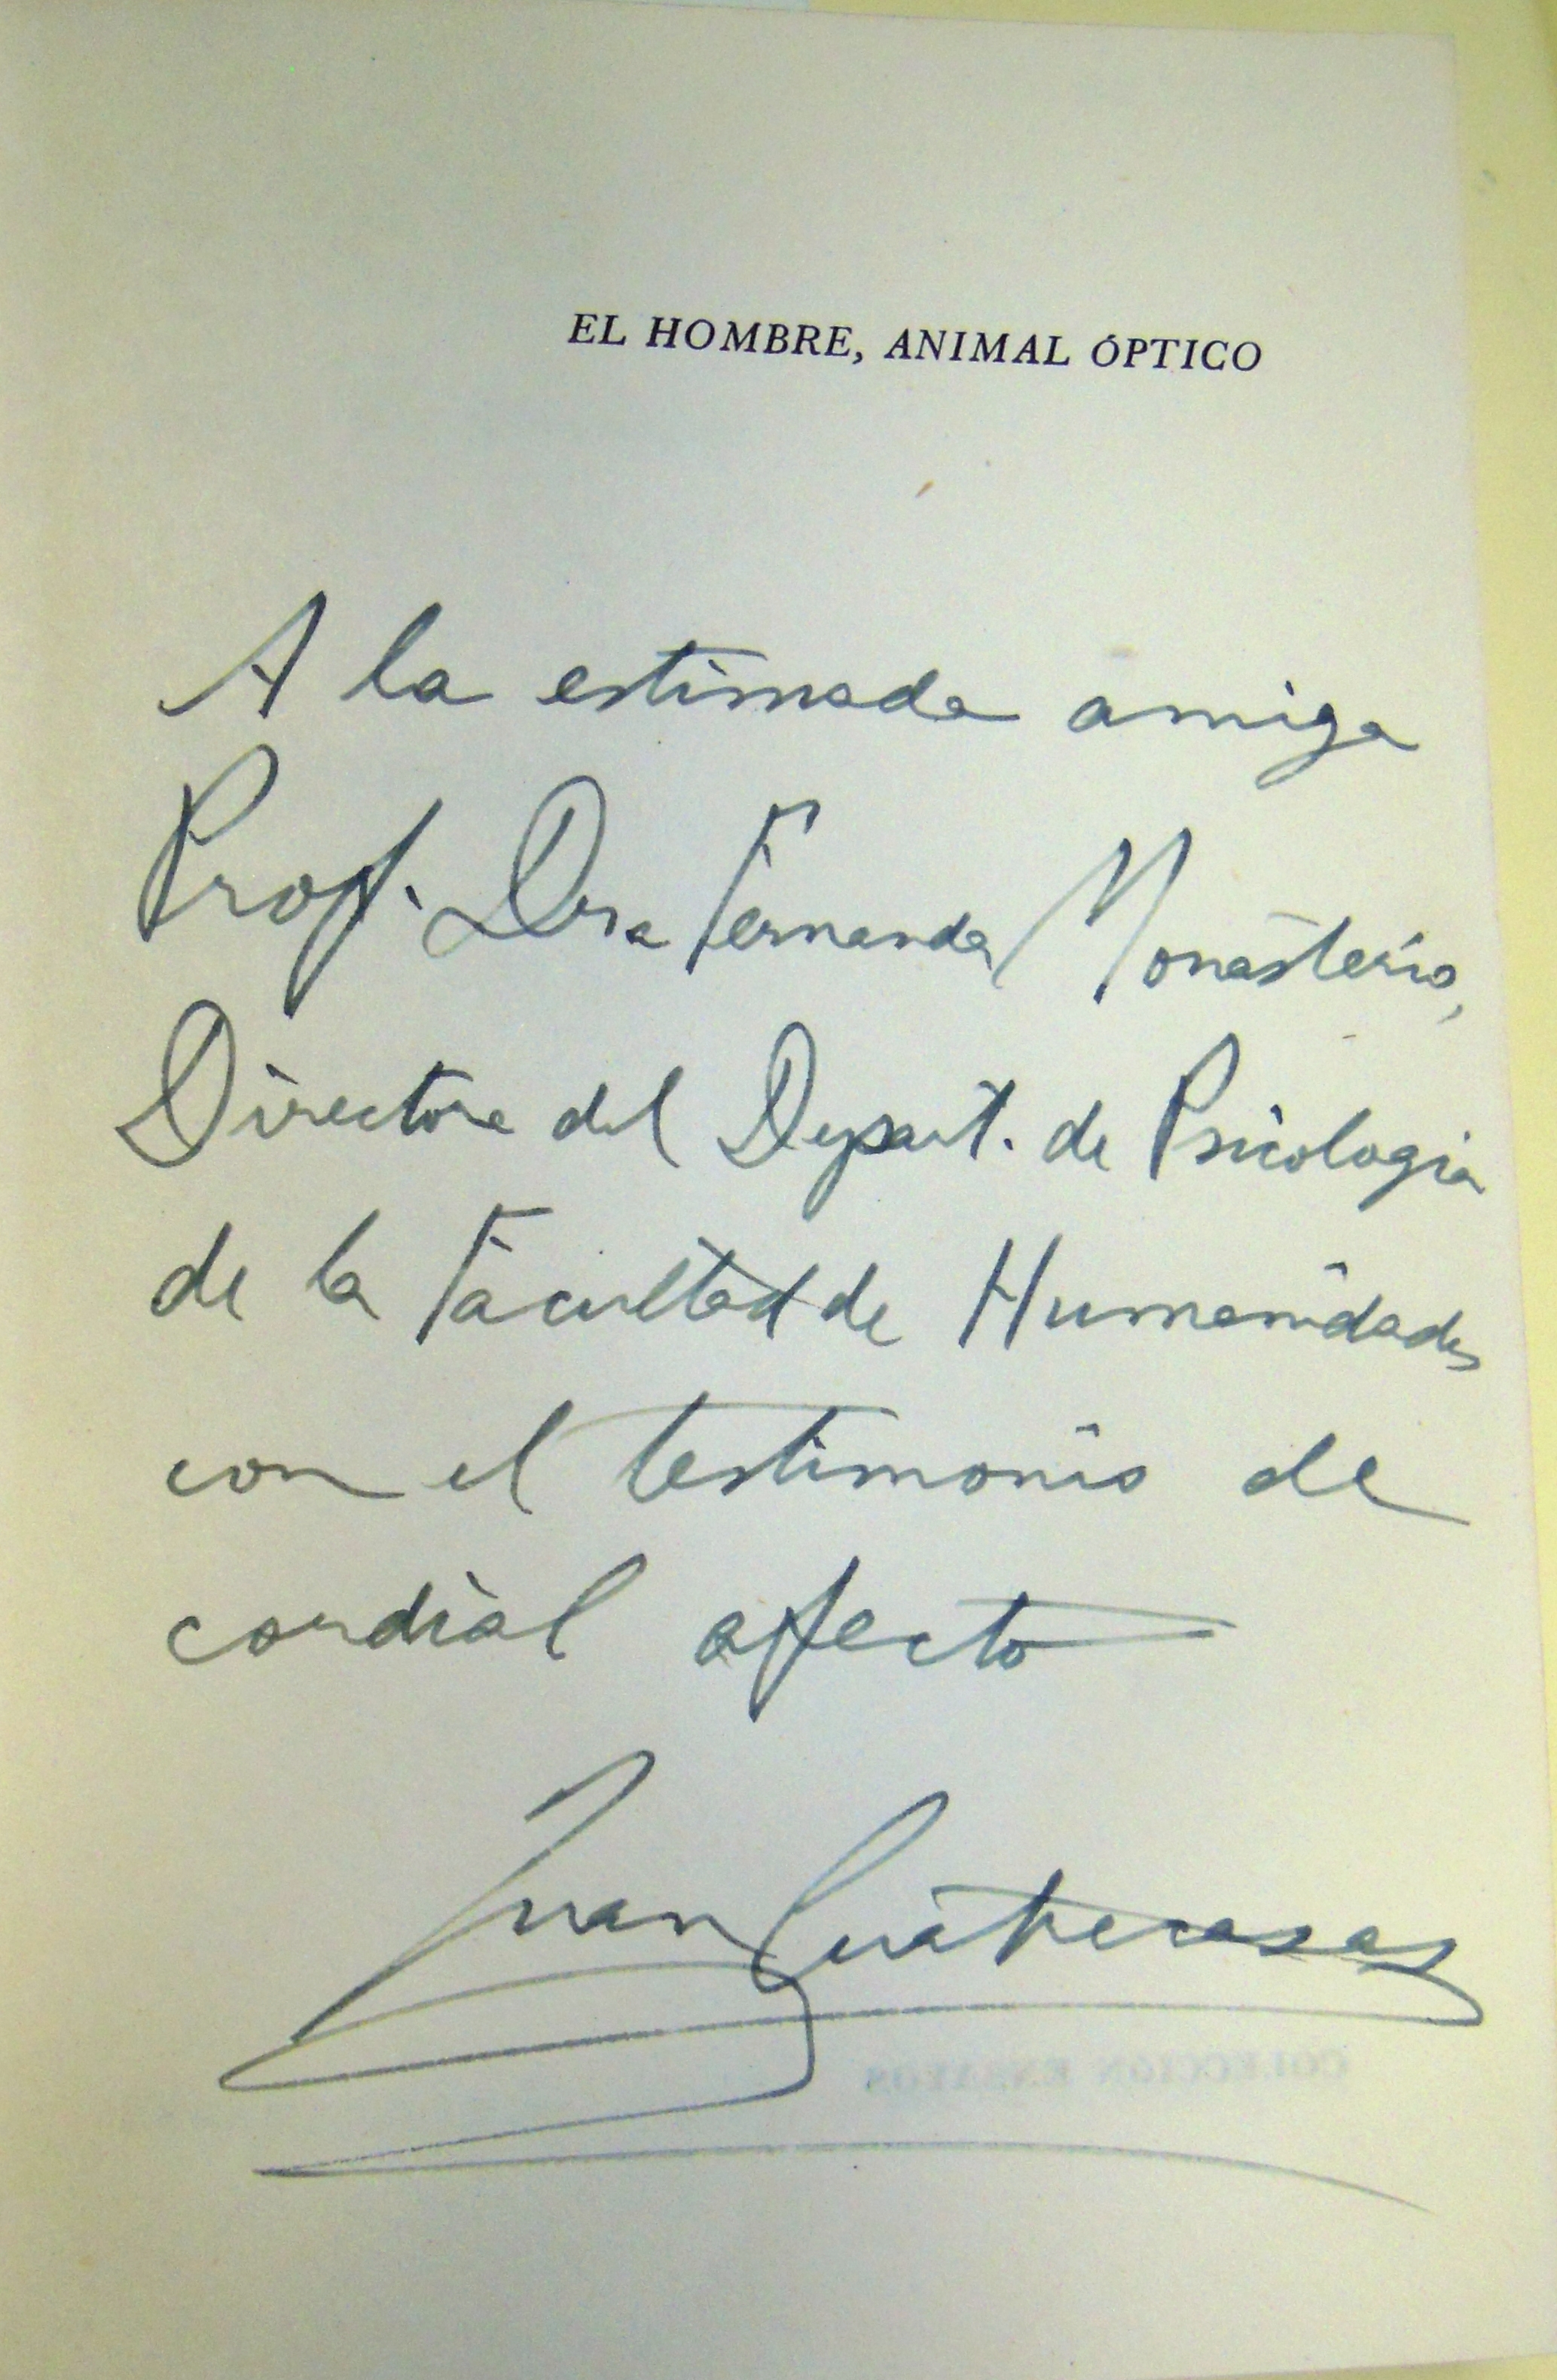 EL HOMBRE, ANIMAL ÓPTICO
A la estimada amiga
Prof. Dra Fernanda Monasterio,
Directora del Depart. de Psicologia
de la Facultad de Humanidades
con el testimonio de
cordial afecto
Juan Cuatrecasas
COLECCIÓN ENSAYOS